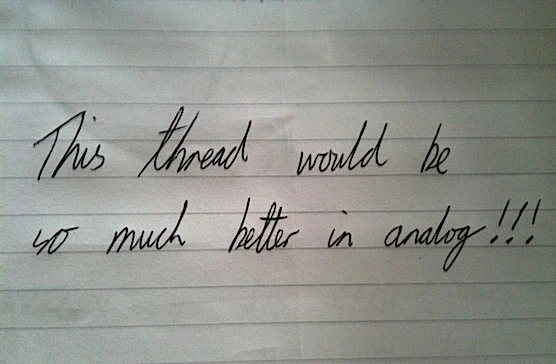 This thread would be
so much better in analog!!!